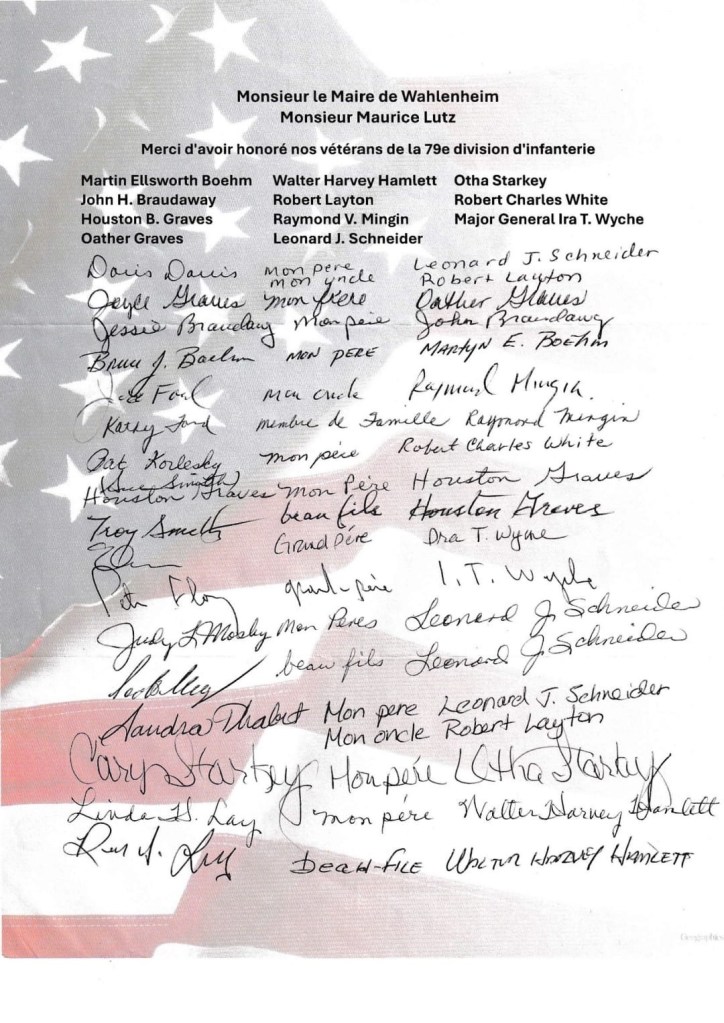 Monsieur le Maire de Wahlenheim
Monsieur Maurice Lutz
Merci d'avoir honoré nos vétérans de la 79e division d'infanterie
Martin Ellsworth Boehm Walter Harvey Hamlett Otha Starkey
John H. Braudaway Robert Layton Robert Charles White
Houston B. Graves Raymond V. Mingin Major General Ira T. Wyche
Oather Graves Leonard J. Schneider
Doris Davis mon pere Leonard J. Schneider
mon uncle Robert Layton
Joyce Graves mon frere Oather Graves
Jessie Braudaway Mon père John Braudaway
Bruce J. Boehm MON PERE MARTYN E. BOEHM
Ford mon oncle Raymond Mingin
Kathy Ford membre de Famille Raymond Mingin
Pat Korlesky mon père Robert Charles White
Houston Graves Mon Père Houston Graves
Troy Smith beau fils Houston Graves
Grand Père Ira T. Wyche
grand-père I. T. Wyche
Judy L Mosby Mon Peres Leonard J. Schneider
beau fils Leonard J. Schneider
Sandra Thabet Mon pere Leonard J. Schneider
Mon oncle Robert Layton
Cary Starkey Mon pére Otha Starkey
Linda H. Lay mon pére Walter Harvey Hamlett
Lay BEAU-FILE WALTUR HARVEY HAMLETT